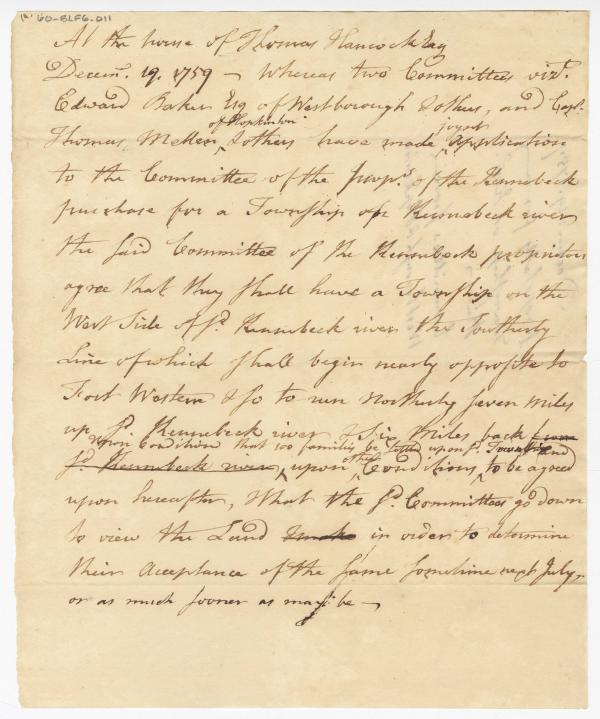 60-BLF6.011
At the house of Thomas Hancock Esq
Decemr. 19. 1759 — Whereas two Committees vizt.
Edward Baker Esq of Westborough & others, and Capt.
of Hopkinton joynt
Thomas Mellen & others have made Application
to the Committee of the proprs. of the Kennebeck
purchase for a Township on Kennebeck river
the said Committee of the Kennebeck proprietors
agree that they shall have a Township on the
West Side of sd. Kennebeck river the Southerly
Line of which shall begin nearly opposite to
Fort Western & so to run Northerly seven miles
up sd. Kennebeck river & Six Miles back from
upon Condition that 100 families be settled upon sd. Township and
sd. Kennebeck river, upon other Conditions to be agreed
upon hereafter, That the sd. Committees go down
to view the Land in order to determine
their Acceptance of the same sometime next July,
or as much sooner as may be —